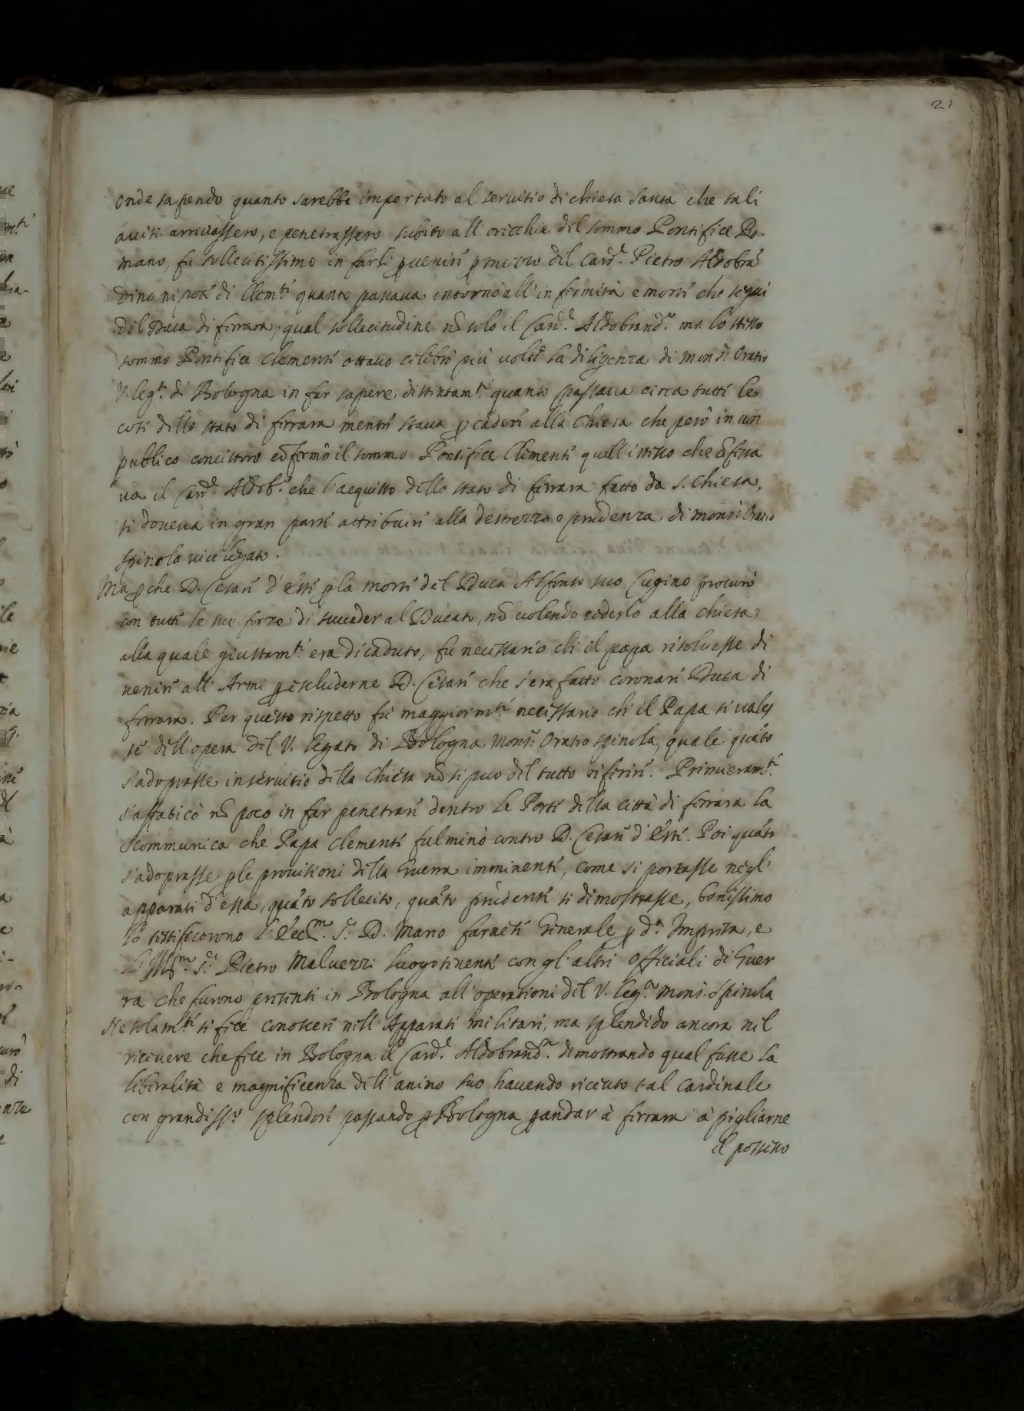 21
onde sapendo quanto sarebbe importato al servitio di chiesa santa che tali
avisi arrivassero, e penetrassero subito all' orecchie del sommo Pontifice Ro-
mano, fu sollecitissimo in farli pvenire p mezzo del Card.^e Pietro Aldobrā
dino nipote di Clem.^te quanto passava intorno all' infermità e morte che seguì
del Duca di ferrara, qual sollecitudine nō solo il Card.^e Aldobrand.^o ma lo stesso
sommo Pontifice Clemente ottavo celebrò più volte la diligenza di Mons.^r Oratio
V. leg.^to di Bologna in far sapere distintam.^te quanto passava circa tutte le
cose dello stato di ferrara mentre stava p cadere alla Chiesa che però in un
publico concistoro cōfermò il sommo Pontifice Clemente quell' istesso che cōfessa
va il Card.^e Aldob.^o che l'acquisto dello stato di ferrara fatto da S. Chiesa,
si doveva in gran parte attribuire alla destrezza e prudenza di Mons.^r Oratio
Spinola vice legato.
Ma pche D. Cesare d' Este p la morte del Duca Alfonso suo Cugino procurò
con tutte le sue forze di succeder al Ducato, nō volendo cederlo alla chiesa,
alla quale giustam.^te era dicaduto, fu necessario che il papa risolvesse di
venire all' Armi p escluderne D. Cesare che s'era fatto coronare Duca di
ferrara. Per questo rispetto fu maggiorm.^te necessario che il Papa si vales
se dell' opera del V. legato di Bologna Mons.^r Oratio Spinola, quale quāto
s'adoprasse in servitio della Chiesa nō si può del tutto riferire. Primieram.^te
s'affaticò nō poco in far penetrare dentro le Porte della città di ferrara la
scommunica che Papa Clemente fulminò contro D. Cesare d' Este. Poi quāto
s'adoprasse p le provisioni della Guerra imminente, come si portasse negl'
apparati d'essa, quāto sollecito, quāto prudente si dimostrasse, bonissimo
lo testificorono l' Ecc.^mo S.^r D. Mario farnese Generale p d.^a Impresa, e
l' Ill.^mo S.^r Pietro Malvezzi luogotenente con gl' altri officiali di Guer
ra che furono presenti in Bologna all' operationi del V. leg.^to Mons. Spinola
Ne solam.^te si fece conoscere nell' Apparati militari, ma splendido ancora nel
ricevere che fece in Bologna il Card.^e Aldobrand.^o dimostrando qual fusse la
liberalità e magnificenza dell' animo suo havendo ricevuto tal Cardinale
con grandiss.^o splendore passando p Bologna p andar à ferrara à pigliarne
il possesso